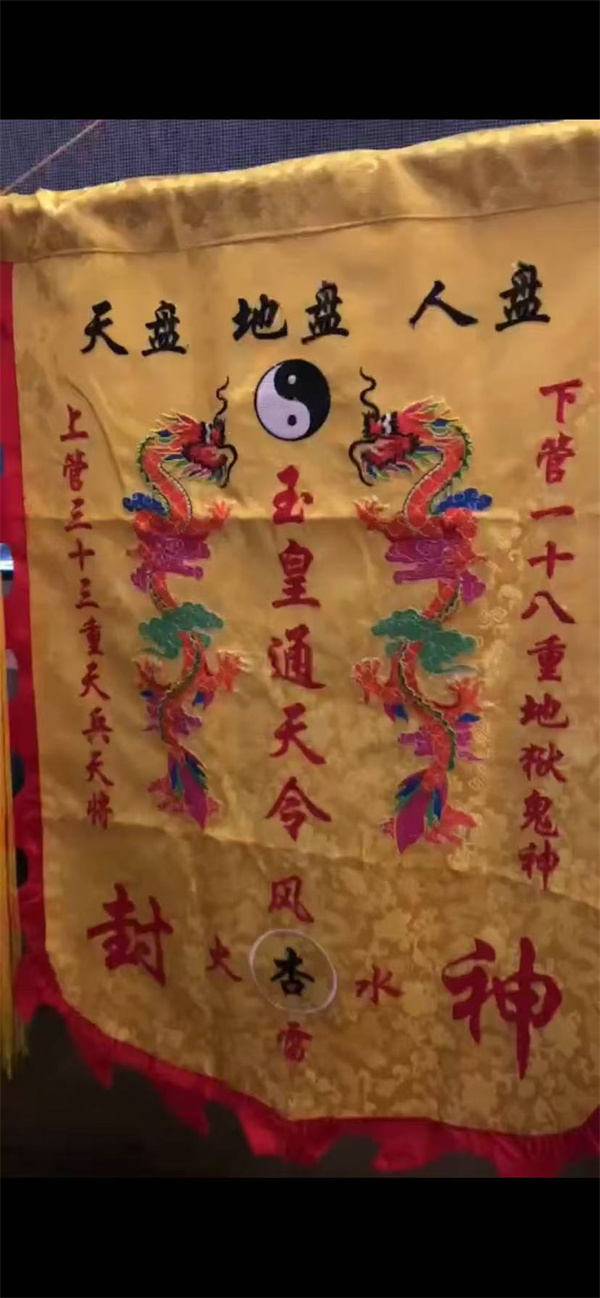 天盘 地盘 人盘
上管三十三重天兵天将
玉皇通天令
下管一十八重地狱鬼神
风
火 杏 水
雷
封 神